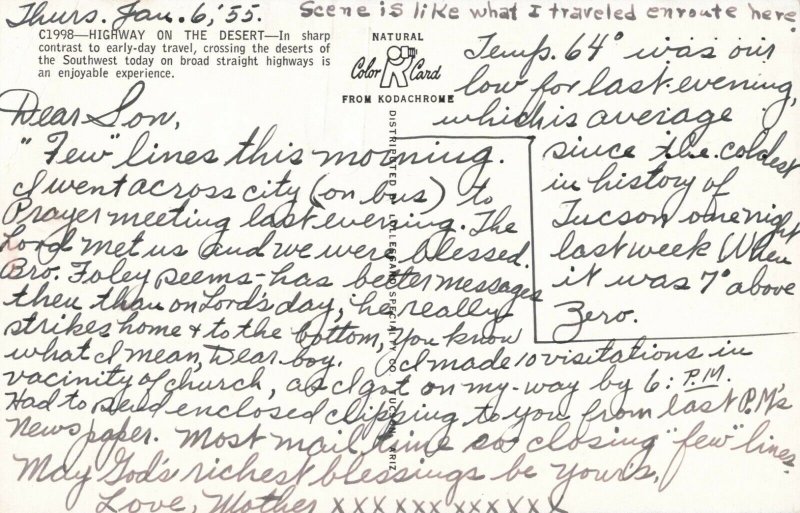 Thurs. Jan. 6, '55.
Scene is like what I traveled enroute here.
C1998—HIGHWAY ON THE DESERT—In sharp
contrast to early-day travel, crossing the deserts of
the Southwest today on broad straight highways is
an enjoyable experience.
NATURAL
Color Card
FROM KODACHROME
DISTRIBUTED BY LOLLESGARD SPECIALTY CO. TUCSON, ARIZ.
Dear Son,
"Few" lines this morning.
I went across city (on bus) to
Prayer meeting last evening. The
Lord met us and we were blessed.
Bro. Foley seems-has better messages
then than on Lord's day, he really
strikes home & to the bottom, you know
what I mean, Dear boy. I made 10 visitations in
vacinity of church, as I got on my-way by 6: P.M.
Had to send enclosed clipping to you from last P.M's
News paper. Most mail time so closing "few" lines.
May God's richest blessings be yours,
Love, Mother xxxxxxxxxxxx
Temp. 64° was our
low for last evening,
which is average
since the coldest
in history of
Tucson one night
last week When
it was 7° above
Zero.